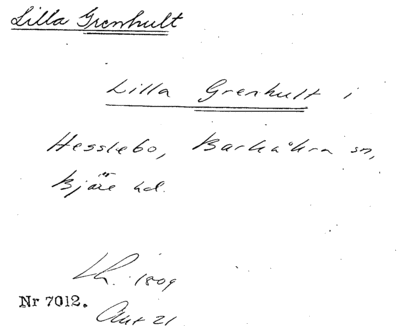 Lilla Grenhult
Lilla Grenhult i
Hesslebo, Barkåkra sn,
Bjäre hd.
Lh. 1809
Nr 7012.
Akt 21